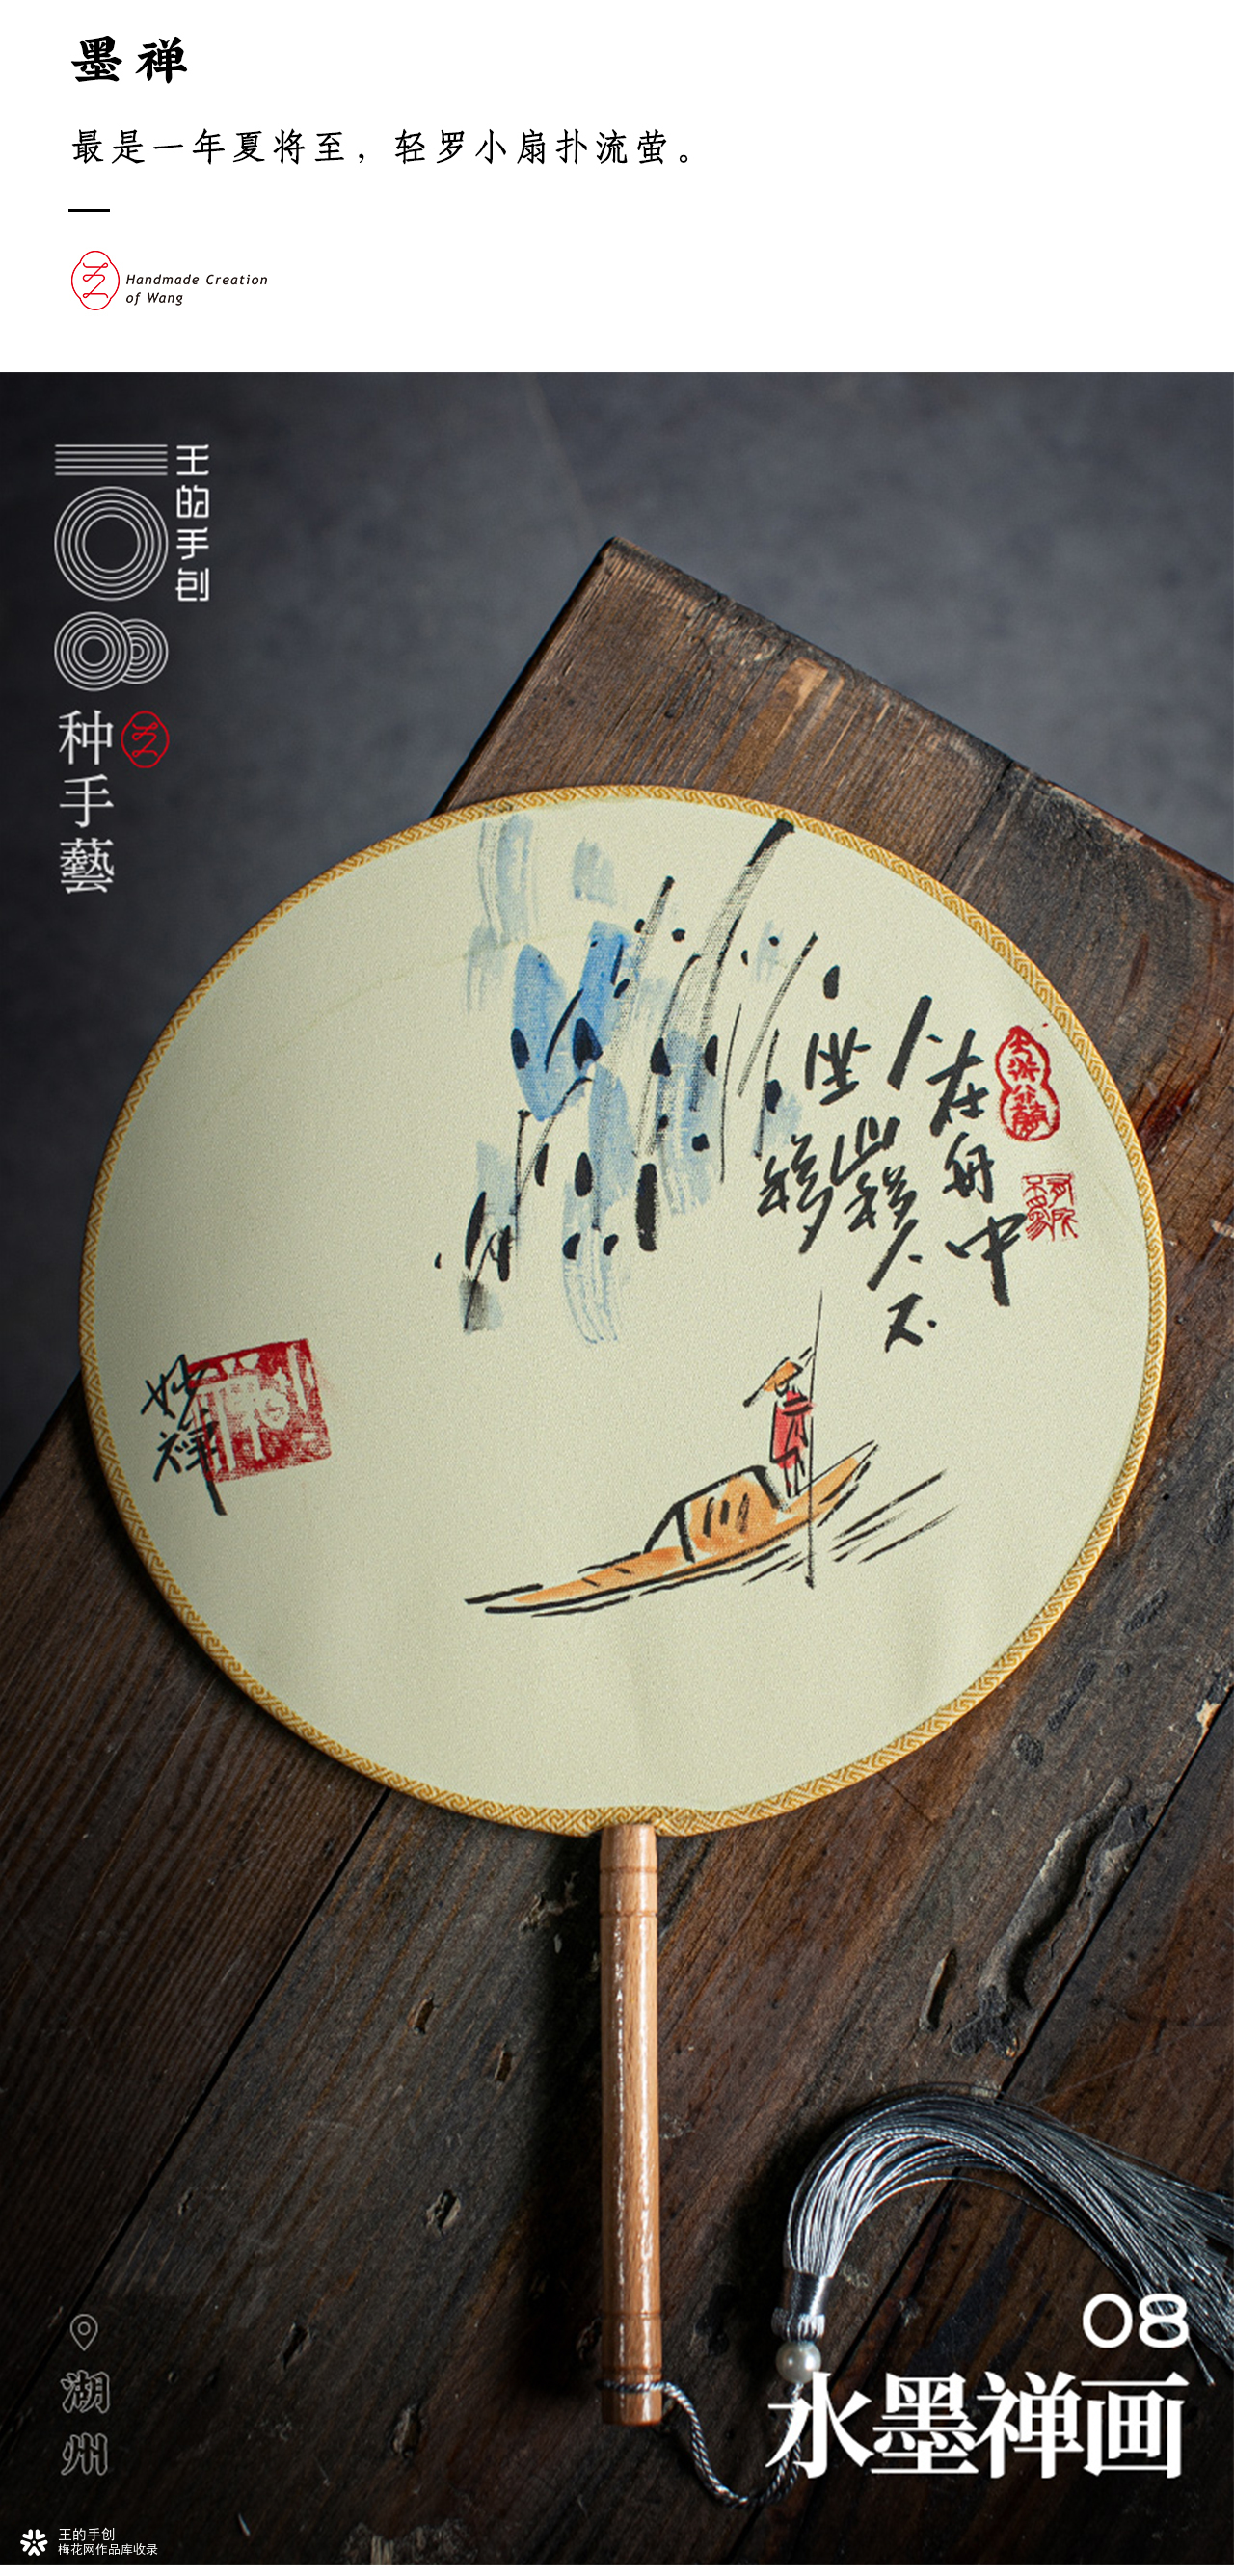 墨禅
最是一年夏将至，轻罗小扇扑流萤。
Handmade Creation
of Wang
王的手创
100种手藝
人在舟中
坐山移人不
移
妙祥
湖州
08
水墨禅画
王的手创
梅花网作品库收录